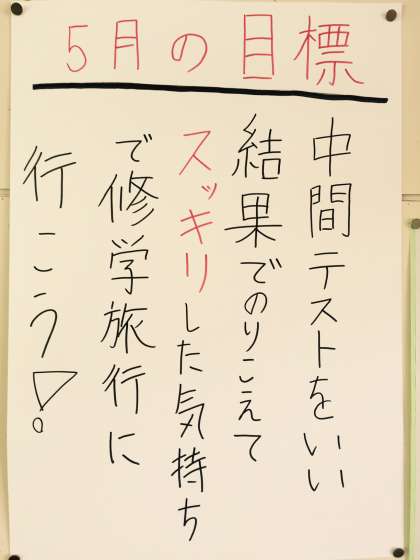 5月の目標
中間テストをいい
結果でのりこえて
スッキリした気持ち
で修学旅行に
行こう!